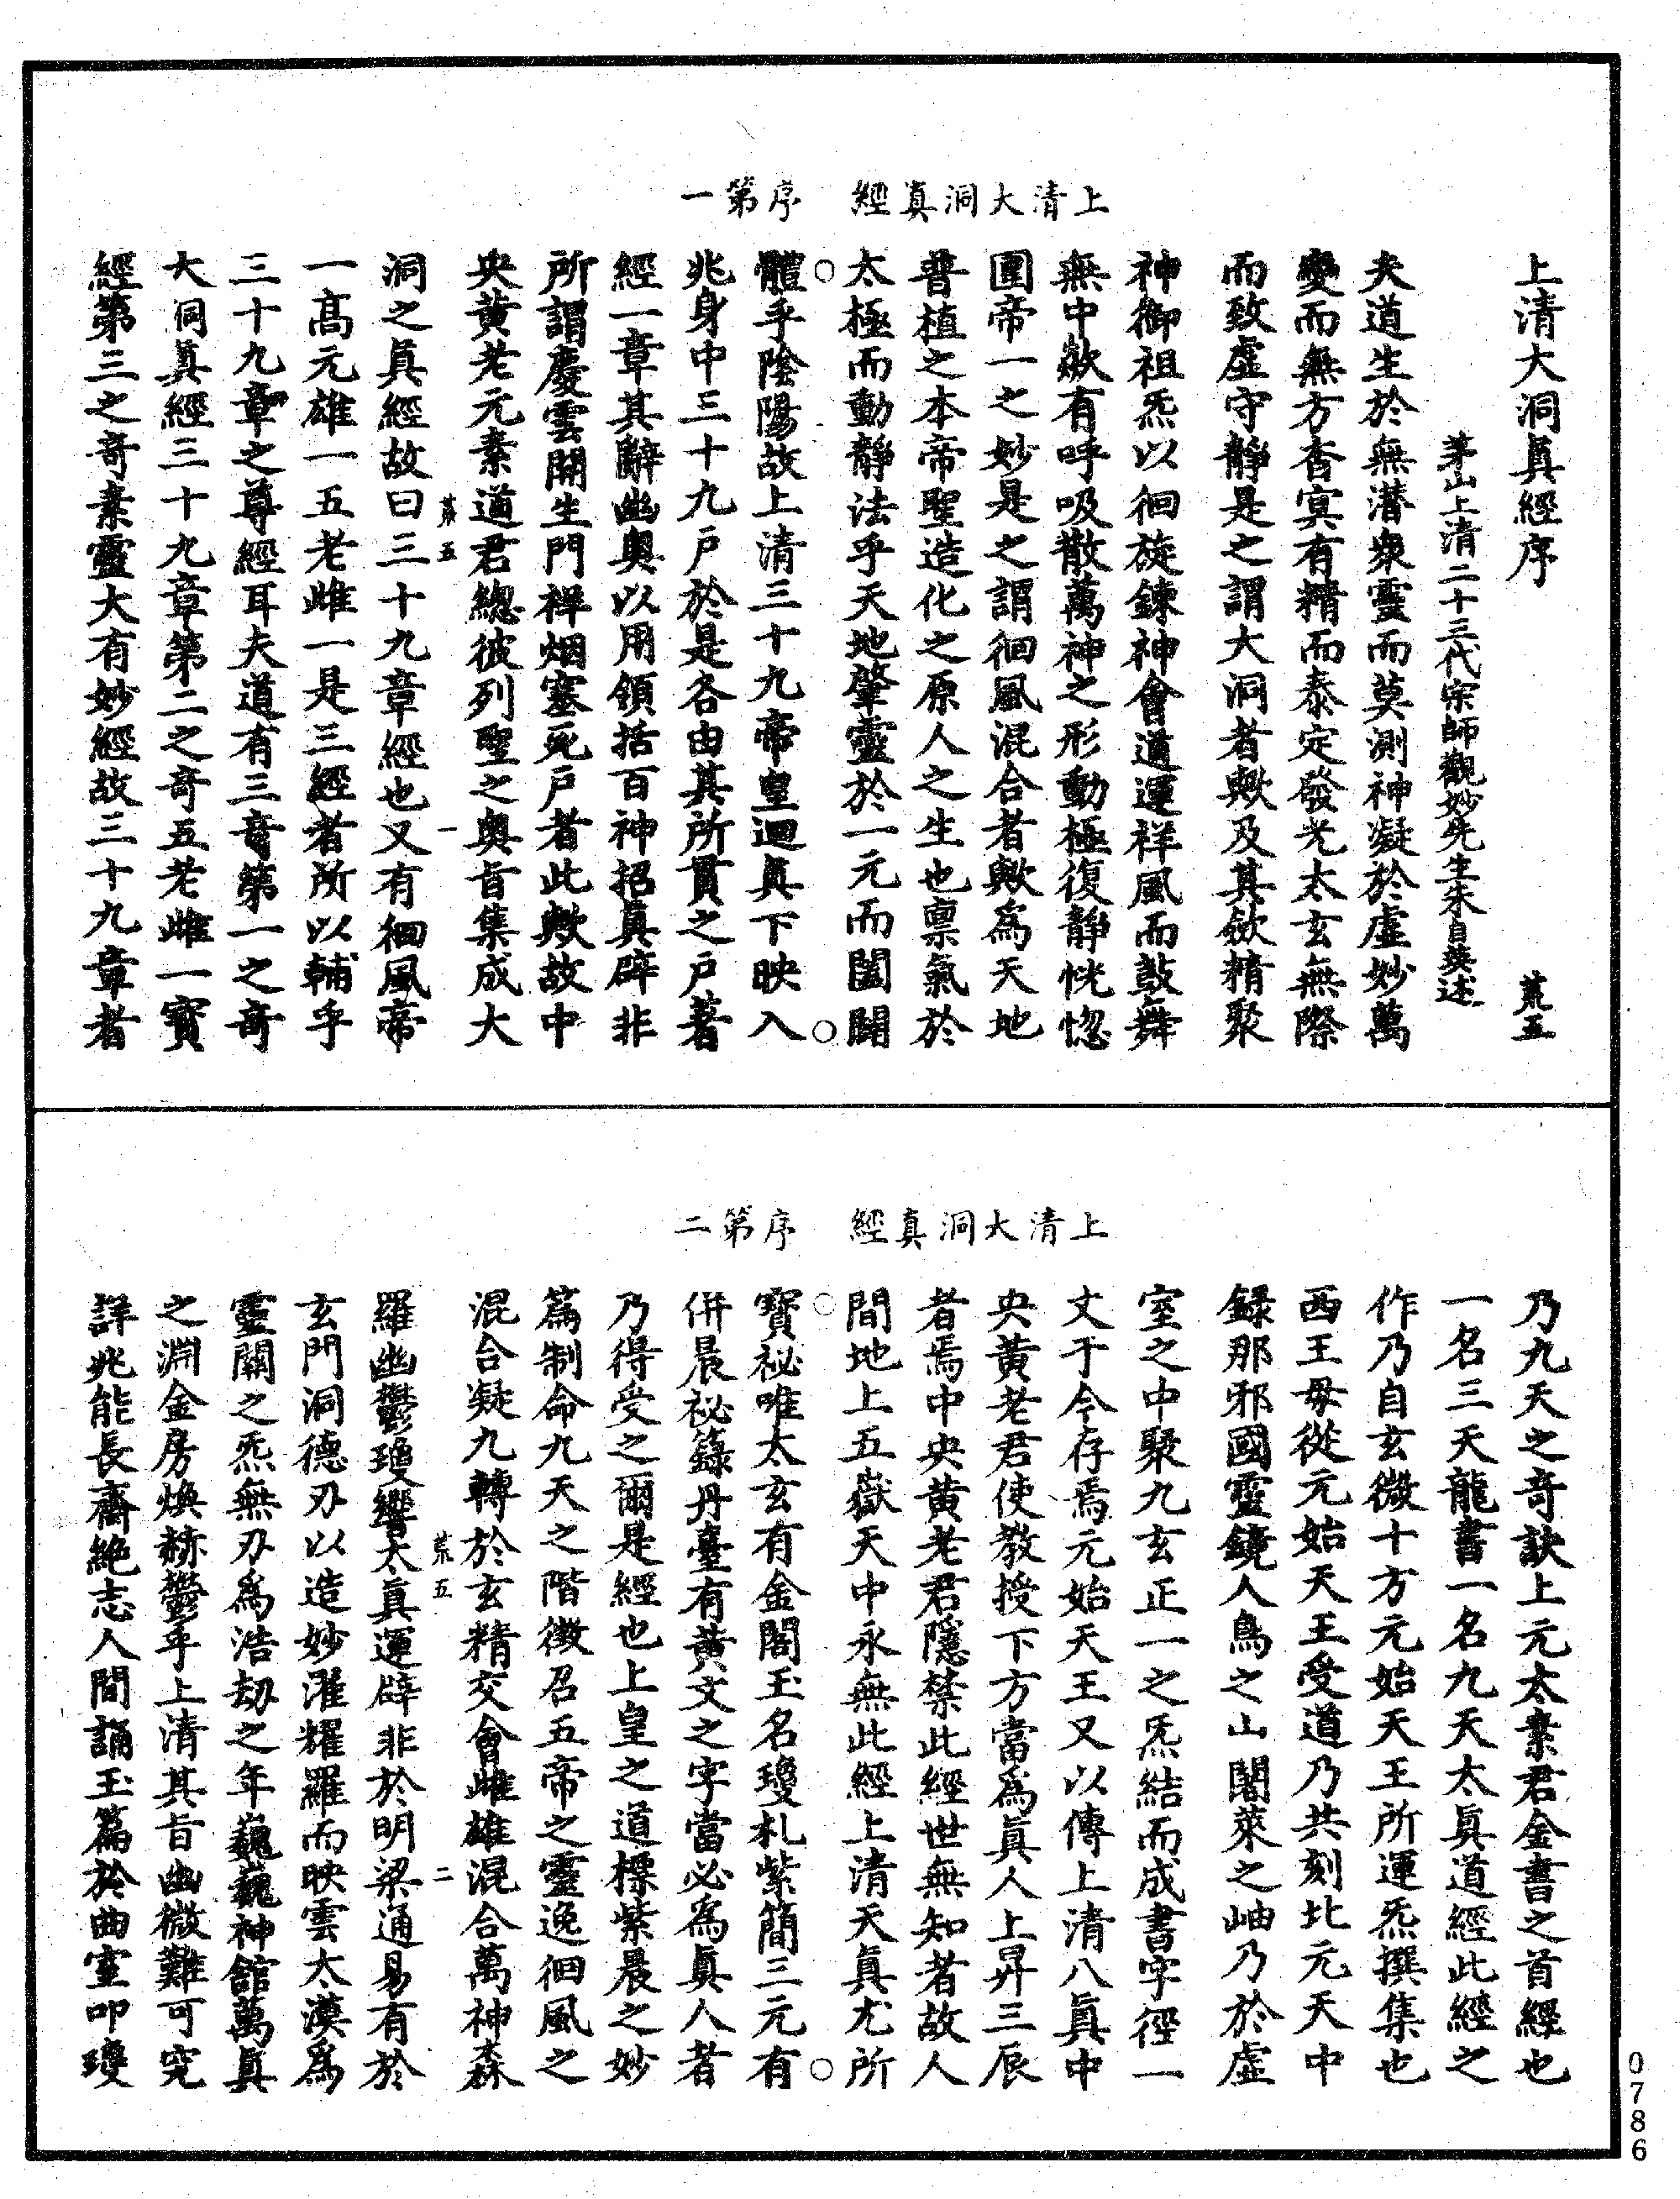 上清大洞真經　序第一
上清大洞眞經序　荒五
茅山上清二十三代宗師觀妙先生朱自英述
夫道生於無潜衆靈而莫測神凝於虛妙萬
變而無方杳冥有精而泰定發光太玄無際
而致虛守靜是之謂大洞者歟及其斂精聚
神御祖炁以徊旋鍊神會道運祥風而鼓舞
無中歘有呼吸散萬神之形動極復靜恍惚
圍帝一之妙是之謂徊風混合者歟為天地
普植之本帝聖造化之原人之生也禀氣於
太極而動靜法乎天地肇靈於一元而闔闢
體乎陰陽故上清三十九帝皇迴眞下映入
兆身中三十九戸於是各由其所貫之戸著
經一章其辭幽奧以用領括百神招眞辟非
所謂慶雲開生門祥烟塞死戸者此歟故中
央黄老元素道君總彼列聖之奥旨集成大
荒五　一
洞之眞經故曰三十九章經也又有徊風帝
一高元雄一五老雌一是三經者所以輔乎
三十九章之尊經耳夫道有三竒第一之竒
大洞眞經三十九章第二之竒五老雌一寳
經第三之竒素靈大有妙經故三十九章者
上清大洞真經　序第二
乃九天之竒訣上元太素君金書之首經也
一名三天龍書一名九天太眞道經此經之
作乃自玄微十方元始天王所運炁撰集也
西王母從元始天王受道乃共刻北元天中
録那邪國靈鏡人鳥之山閬萊之岫乃於虛
室之中聚九玄正一之炁結而成書字徑一
丈于今存焉元始天王又以傳上清八眞中
央黄老君使教授下方當為眞人上昇三辰
者焉中央黄老君隱禁此經世無知者故人
間地上五嶽天中永無此經上清天眞尤所
寳祕唯太玄有金閣玉名瓊札紫簡三元有
併晨祕籙丹臺有黄文之字當必為眞人者
乃得受之爾是經也上皇之道標紫晨之妙
篇制命九天之階徵召五帝之靈逸徊風之
混合凝九轉於玄精交會雌雄混合萬神森
荒五　二
羅幽鬱瓊響太眞運辟非於明梁通易有於
玄門洞德刃以造妙濯耀羅而映雲太漠為
靈關之炁無刃為浩劫之年巍巍神舘萬眞
之淵金房煥赫鬱乎上清其旨幽微難可究
詳兆能長齋絶志人間誦玉篇於曲室叩瓊
0786